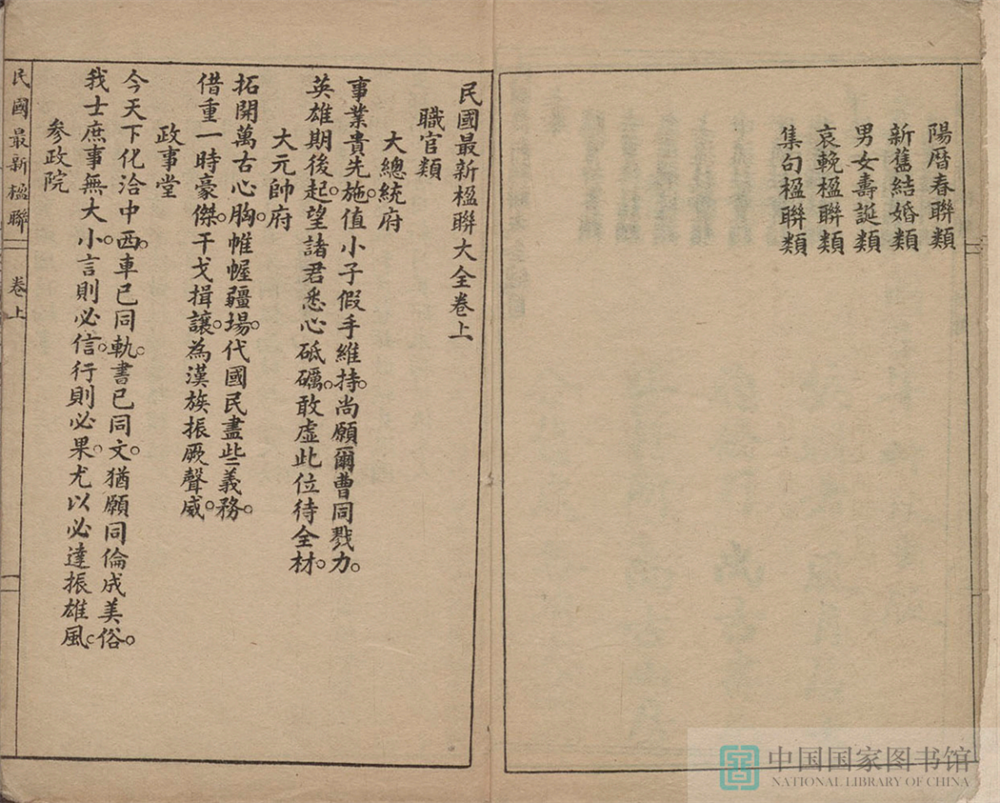 陽曆春聯類
新舊結婚類
男女壽誕類
哀輓楹聯類
集句楹聯類
民國最新楹聯大全卷上
職官類
大總統府
事業貴先施。值小子假手維持。尚願爾曹同戮力。
英雄期後起。望諸君悉心砥礪。敢虛此位待全材。
大元帥府
拓開萬古心胸。帷幄疆場。代國民盡些義務。
借重一時豪傑。干戈揖讓。為漢族振厥聲威。
政事堂
今天下化洽中西。車已同軌。書已同文。猶願同倫成美俗。
我士庶事無大小。言則必信。行則必果。尤以必達振雄風。
參政院
民國最新楹聯 卷上
中国国家图书馆
NATIONAL LIBRARY OF CHINA